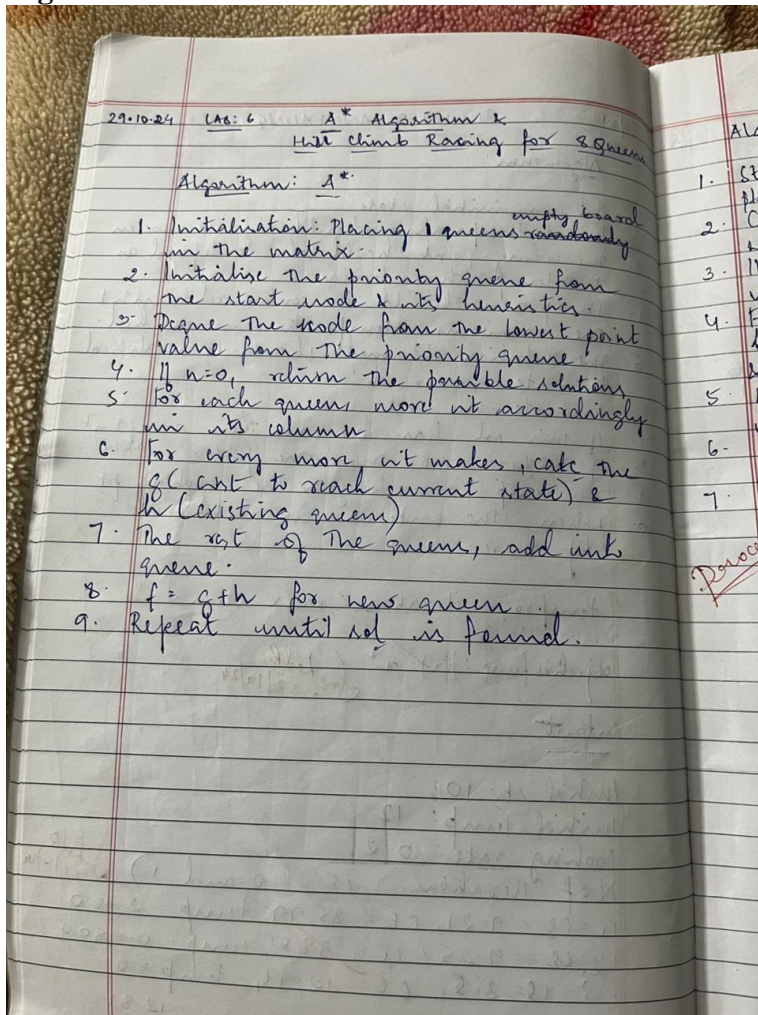 29.10.24 LAB: 6 A* Algorithm &
Hill Climb Racing for 8 Queens
Algorithm: A*.
empty board
1. Initialisation: Placing 1 queens randomly
in the matrix.
2. Initialise the priority queue from
the start node & its heuristics.
3. Deque the node from the lowest point
value from the priority queue
4. If n=0, return the possible solutions
5. For each queen, move it accordingly
in its column
6. For every move it makes, calc the
g( cost to reach current state) &
h (existing queens)
7. The rest of the queens, add into
queue.
8. f = g+h for new queen.
9. Repeat until sol is found.
Al
1. St
pl
2. C
3.
4. F
5.
6.
7.
Proce